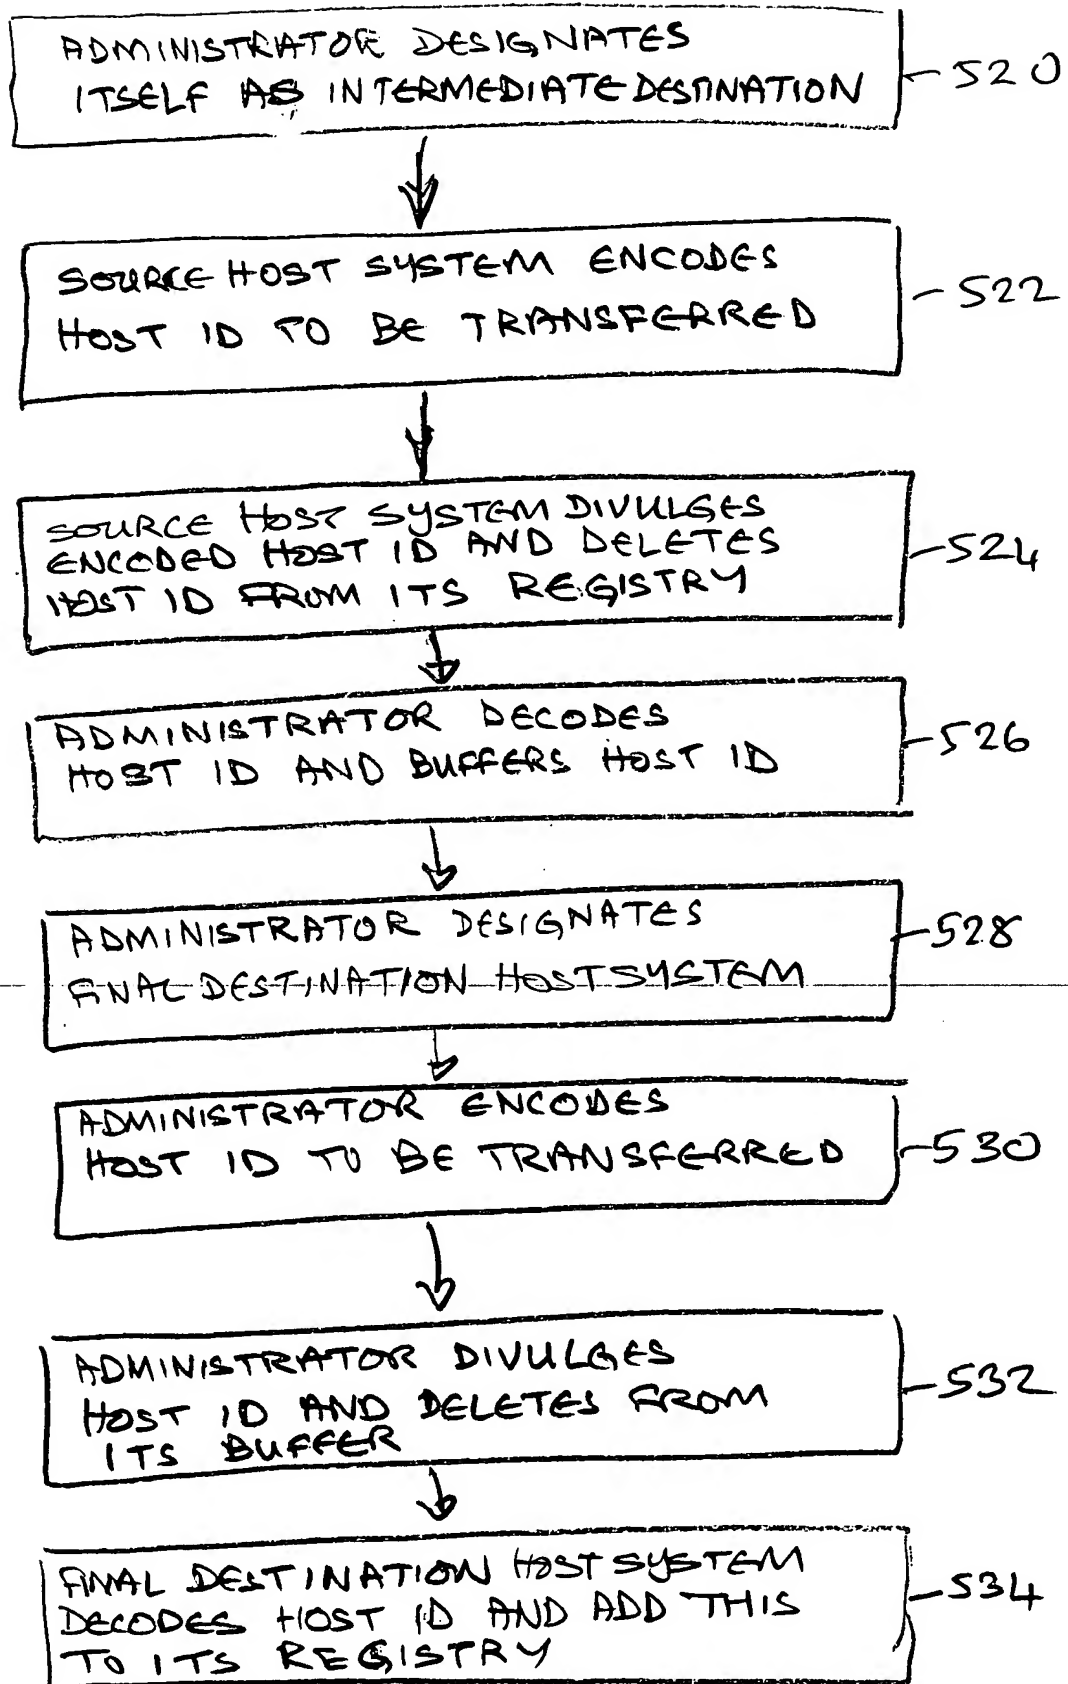 ADMINISTRATOR DESIGNATES
ITSELF AS INTERMEDIATE DESTINATION
520
SOURCE HOST SYSTEM ENCODES
HOST ID TO BE TRANSFERRED
522
SOURCE HOST SYSTEM DIVULGES
ENCODED HOST ID AND DELETES
HOST ID FROM ITS REGISTRY
524
ADMINISTRATOR DECODES
HOST ID AND BUFFERS HOST ID
526
ADMINISTRATOR DESIGNATES
FINAL DESTINATION HOST SYSTEM
528
ADMINISTRATOR ENCODES
HOST ID TO BE TRANSFERRED
530
ADMINISTRATOR DIVULGES
HOST ID AND DELETES FROM
ITS BUFFER
532
FINAL DESTINATION HOST SYSTEM
DECODES HOST ID AND ADD THIS
TO ITS REGISTRY
534